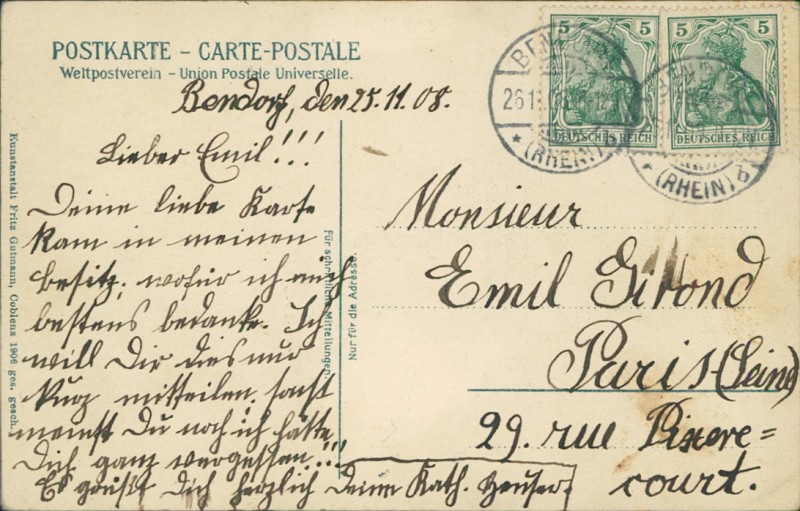 POSTKARTE – CARTE-POSTALE
Weltpostverein – Union Postale Universelle.
Bendorf, den 25.11.08.
Lieber Emil!!!
Deine liebe Karte
kam in meinen
besitz, wofür ich mich
bestens bedanke. Ich
will Dir dies nur
kurz mitteilen, sonst
meinst Du noch ich hätte
Dich ganz vergessen!!!
Es grüßt Dich herzlich Deine Kath. Heuser.
Kunstanstalt Fritz Gutmann, Coblenz 1906 ges. gesch.
Für schriftliche Mitteilungen.
Nur für die Adresse.
5 5
DEUTSCHES REICH
5 5
DEUTSCHES REICH
BENDORF
26.11.08
* (RHEIN) b
* (RHEIN) b
Monsieur
Emil Girond
Paris (Seine)
29. rue Pixere=
court.